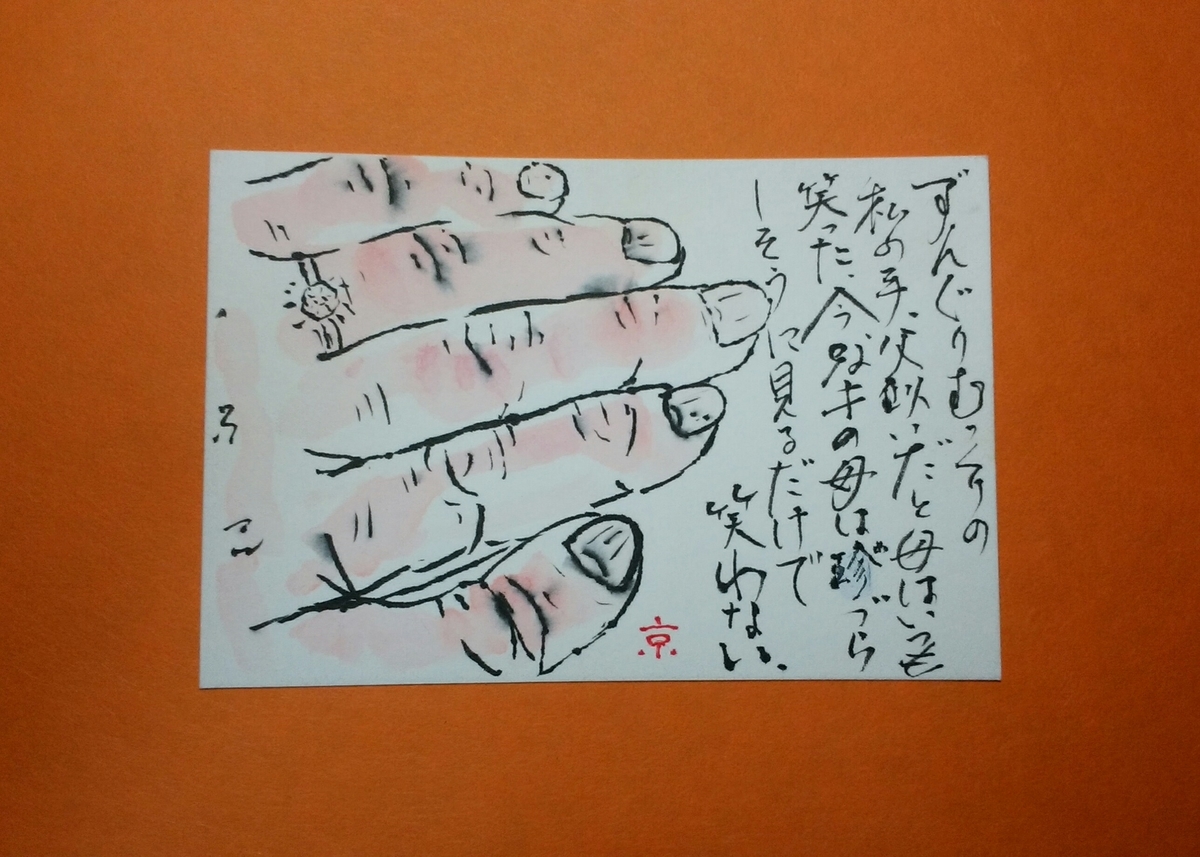 ずんぐりむっくりの
私の手、父似だと母はいつも
笑った、今才の母は珍づら
しそうに見るだけで
笑わない、
京